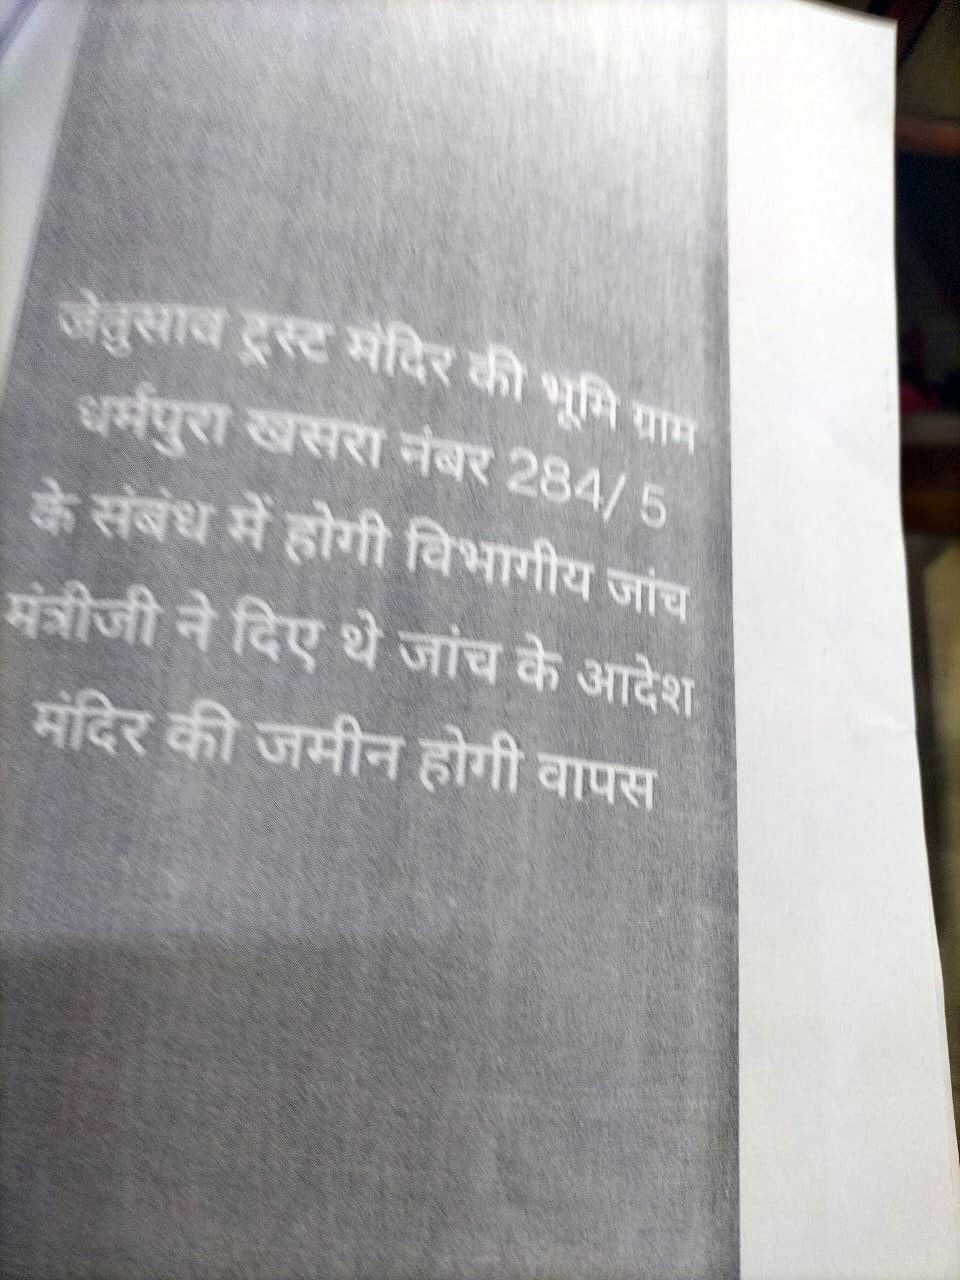 जेतुसाव ट्रस्ट मंदिर की भूमि ग्राम
धर्मपुरा खसरा नंबर 284/ 5
के संबंध में होगी विभागीय जांच
मंत्रीजी ने दिए थे जांच के आदेश
मंदिर की जमीन होगी वापस